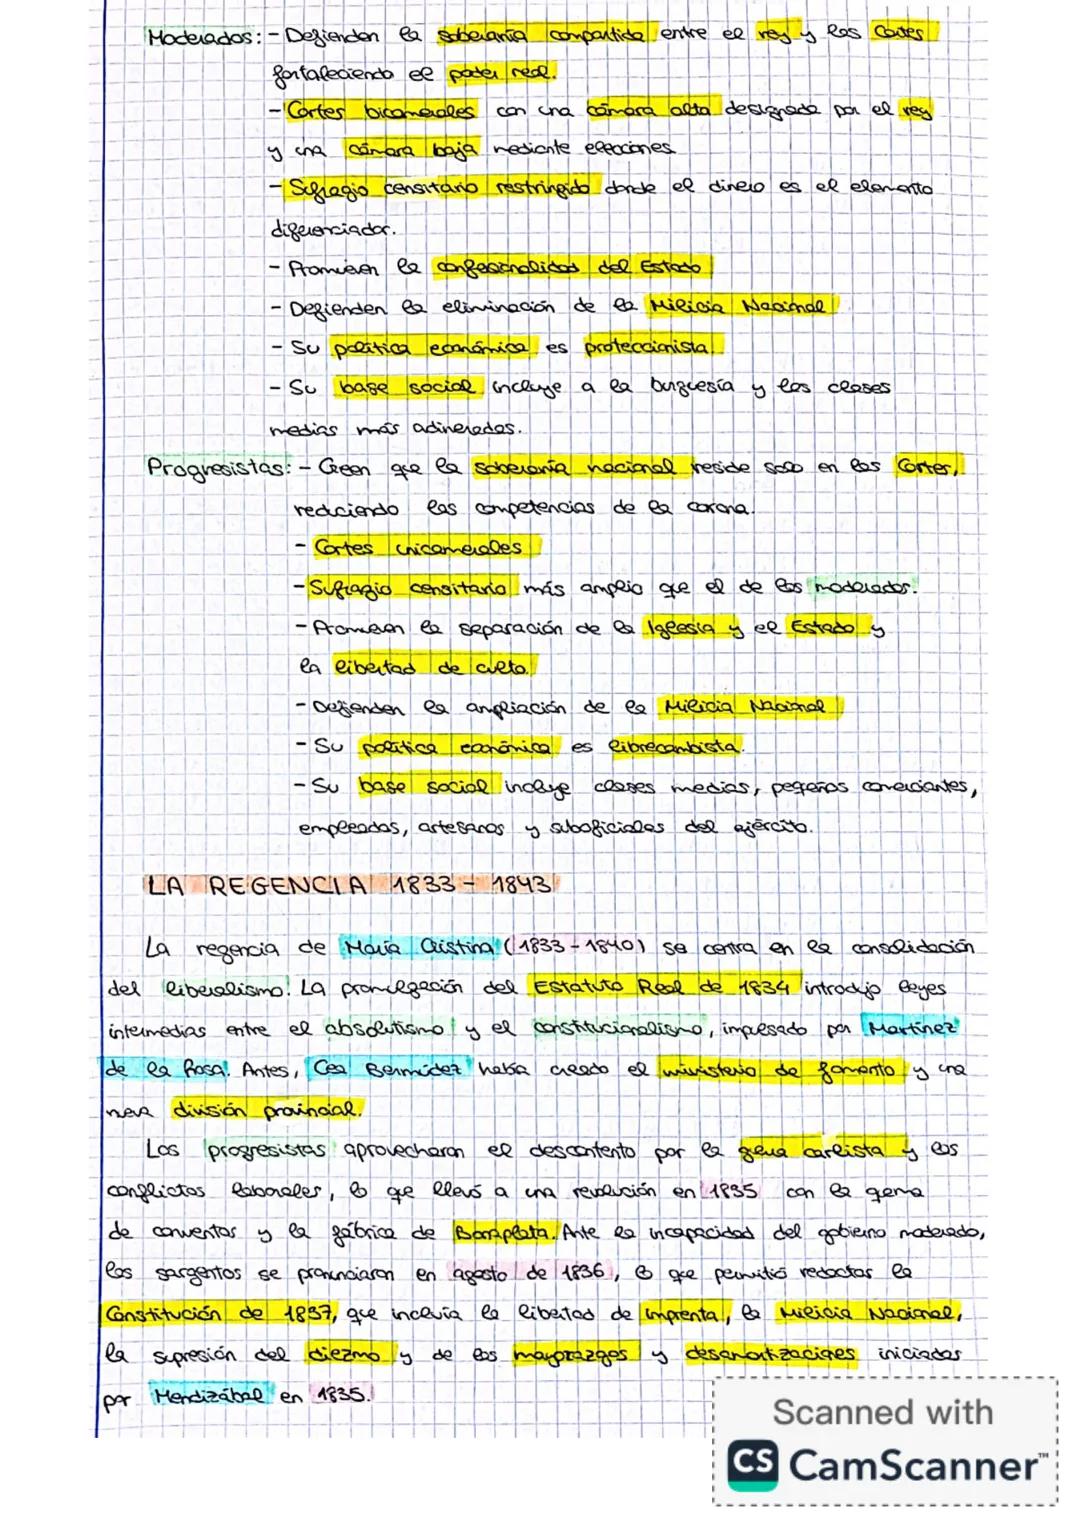 Moderados: - Defienden la soberanía compartida entre el rey y las Cortes
fortaleciendo el poder real.
- Cortes bicamerales con una cámara alta designada por el rey
y una cámara baja mediante elecciones
- Sufragio censitario restringido donde el dinero es el elemento
diferenciador.
- Promueven la confesionalidad del Estado
- Defienden la eliminación de la Milicia Nacional
- Su política económica es proteccionista.
- Su base social incluye a la burguesía y las clases
medias más adineradas.
Progresistas: - Creen que la soberanía nacional reside solo en las Cortes,
reduciendo las competencias de la corona.
- Cortes unicamerales
- Sufragio censitario más amplio que el de los moderados.
- Promueven la separación de la Iglesia y el Estado y
la libertad de culto.
- Defienden la ampliación de la Milicia Nacional
- Su política económica es librecambista.
- Su base social incluye clases medias, pequeños comerciantes,
empleados, artesanos y suboficiales del ejército.
LA REGENCIA 1833 - 1843
La regencia de María Cristina (1833 - 1840) se centra en la consolidación
del liberalismo. La promulgación del Estatuto Real de 1834 introdujo leyes
intermedias entre el absolutismo y el constitucionalismo, impulsado por Martínez
de la Rosa. Antes, Cea Bermúdez había creado el ministerio de fomento y una
nueva división provincial.
Los progresistas aprovecharon el descontento por la guerra carlista y los
conflictos laborales, lo que llevó a una revolución en 1835 con la quema
de conventos y la fábrica de Bonaplata. Ante la incapacidad del gobierno moderado,
los sargentos se pronunciaron en agosto de 1836, lo que permitió redactar la
Constitución de 1837, que incluía la libertad de imprenta, la Milicia Nacional,
la supresión del diezmo y de los mayorazgos y desamortizaciones iniciadas
por Mendizábal en 1835.
Scanned with
CS CamScanner™